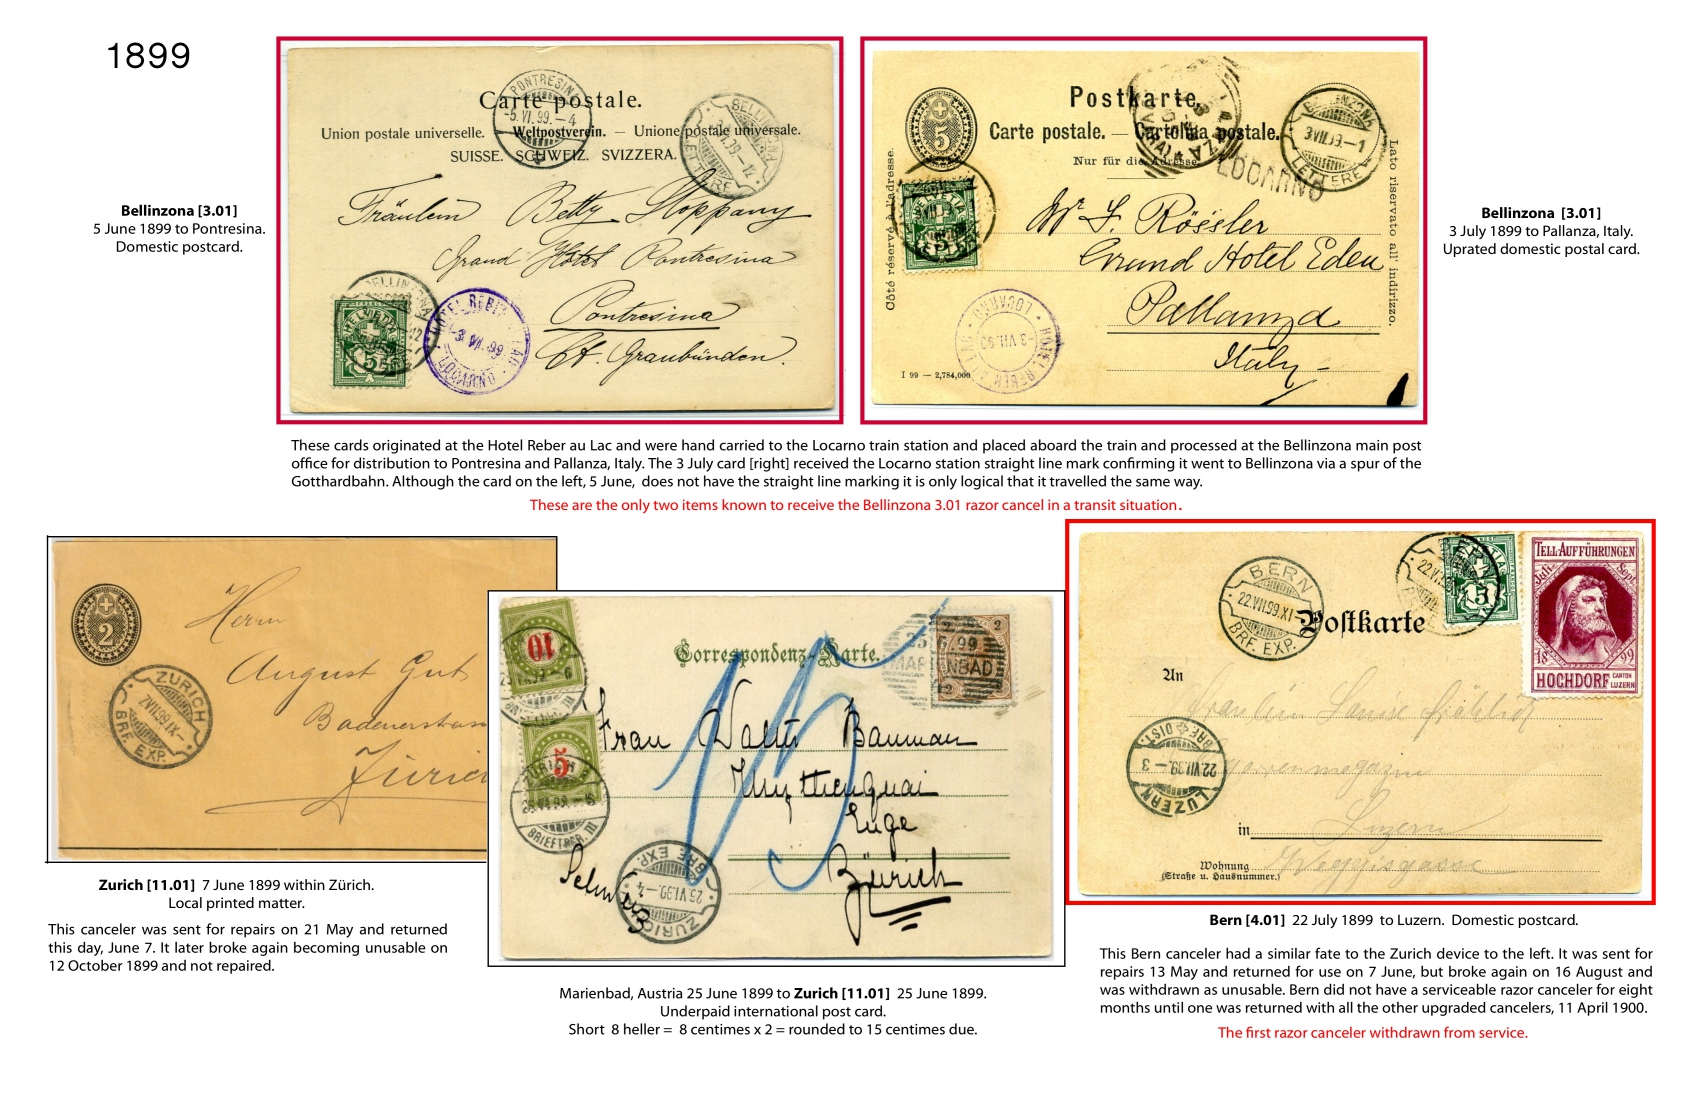 1899
Carte postale.
PONTRESINA
-5.VI.99.-4
BELLINZONA
LETTERE
Union postale universelle. — Weltpostverein. — Unione postale universale.
SUISSE. SCHWEIZ. SVIZZERA.
Fräulein Betty Stoppany
Grand Hôtel Pontresina
Pontresina
Ct. Graubünden.
BELLINZONA
HELVETIA
5
LOCARNO
Postkarte.
Carte postale. — Cartolina postale.
Nur für die Adresse.
5
LOCARNO
BELLINZONA
3.VII.99.-1
LETTERE
Côté réservé à l'adresse.
Lato riservato all' indirizzo.
HELVETIA
5
Mr. F. Rössler
Grand Hotel Eden
Pallanza
Italy -
LOCARNO
-3 VII.99
I 99 — 2,784,000
Bellinzona [3.01]
5 June 1899 to Pontresina.
Domestic postcard.
Bellinzona [3.01]
3 July 1899 to Pallanza, Italy.
Uprated domestic postal card.
These cards originated at the Hotel Reber au Lac and were hand carried to the Locarno train station and placed aboard the train and processed at the Bellinzona main post
office for distribution to Pontresina and Pallanza, Italy. The 3 July card [right] received the Locarno station straight line mark confirming it went to Bellinzona via a spur of the
Gotthardbahn. Although the card on the left, 5 June, does not have the straight line marking it is only logical that it travelled the same way.
These are the only two items known to receive the Bellinzona 3.01 razor cancel in a transit situation.
2
Herrn
August Gut
Zürich
ZÜRICH
7.VI.99.IX-
BRF. EXP.
Correspondenz-Karte.
10
5
ZÜRICH
BRIEFTRGR. III
2 2
25
6 99
MARIENBAD
12
15
Frau Walter Bauman
Mythenquai
Enge
Zürich
ZÜRICH
25.VI.99.-4
BRF. EXP.
Postkarte
BERN
22.VII.99.XI-
BRF. EXP.
BERN
5
TELL-AUFFÜHRUNGEN
Juli Sept.
18 99
HOCHDORF CANTON LUZERN
An
Fräulein Louise Fröhlich
LUZERN
22.VII.99.-3
BRF. DIST.
in Luzern
Wohnung
(Straße u. Hausnummer.)
Weggisgasse
Zurich [11.01] 7 June 1899 within Zürich.
Local printed matter.
This canceler was sent for repairs on 21 May and returned
this day, June 7. It later broke again becoming unusable on
12 October 1899 and not repaired.
Marienbad, Austria 25 June 1899 to Zurich [11.01] 25 June 1899.
Underpaid international post card.
Short 8 heller = 8 centimes x 2 = rounded to 15 centimes due.
Bern [4.01] 22 July 1899 to Luzern. Domestic postcard.
This Bern canceler had a similar fate to the Zurich device to the left. It was sent for
repairs 13 May and returned for use on 7 June, but broke again on 16 August and
was withdrawn as unusable. Bern did not have a serviceable razor canceler for eight
months until one was returned with all the other upgraded cancelers, 11 April 1900.
The first razor canceler withdrawn from service.